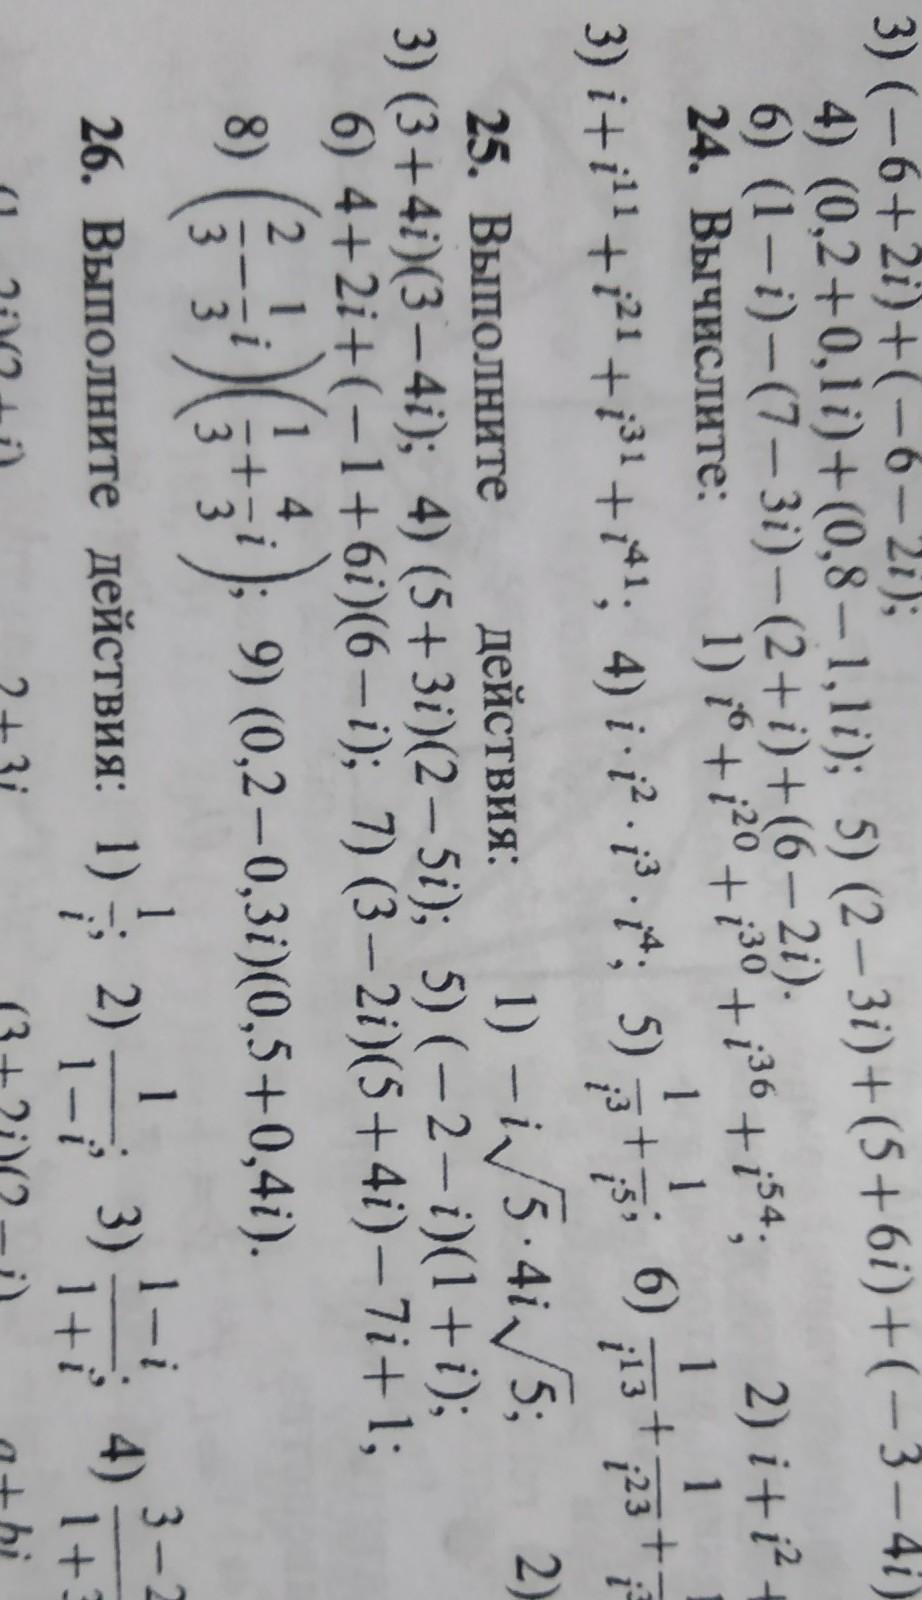 3) (−6+2i)+(−6−2i);
4) (0,2+0,1i)+(0,8−1,1i); 5) (2−3i)+(5+6i)+(−3−4i)
6) (1−i)−(7−3i)−(2+i)+(6−2i).
24. Вычислите: 1) i⁶+i²⁰+i³⁰+i³⁶+i⁵⁴; 2) i+i²+
3) i+i¹¹+i²¹+i³¹+i⁴¹; 4) i·i²·i³·i⁴; 5) 1/i³+1/i⁵; 6) 1/i¹³+1/i²³+
25. Выполните действия: 1) −i√5·4i√5; 2)
3) (3+4i)(3−4i); 4) (5+3i)(2−5i); 5) (−2−i)(1+i);
6) 4+2i+(−1+6i)(6−i); 7) (3−2i)(5+4i)−7i+1;
8) (2/3−1/3i)(1/3+4/3i); 9) (0,2−0,3i)(0,5+0,4i).
26. Выполните действия: 1) 1/i; 2) 1/(1−i); 3) (1−i)/(1+i); 4)
2+3i